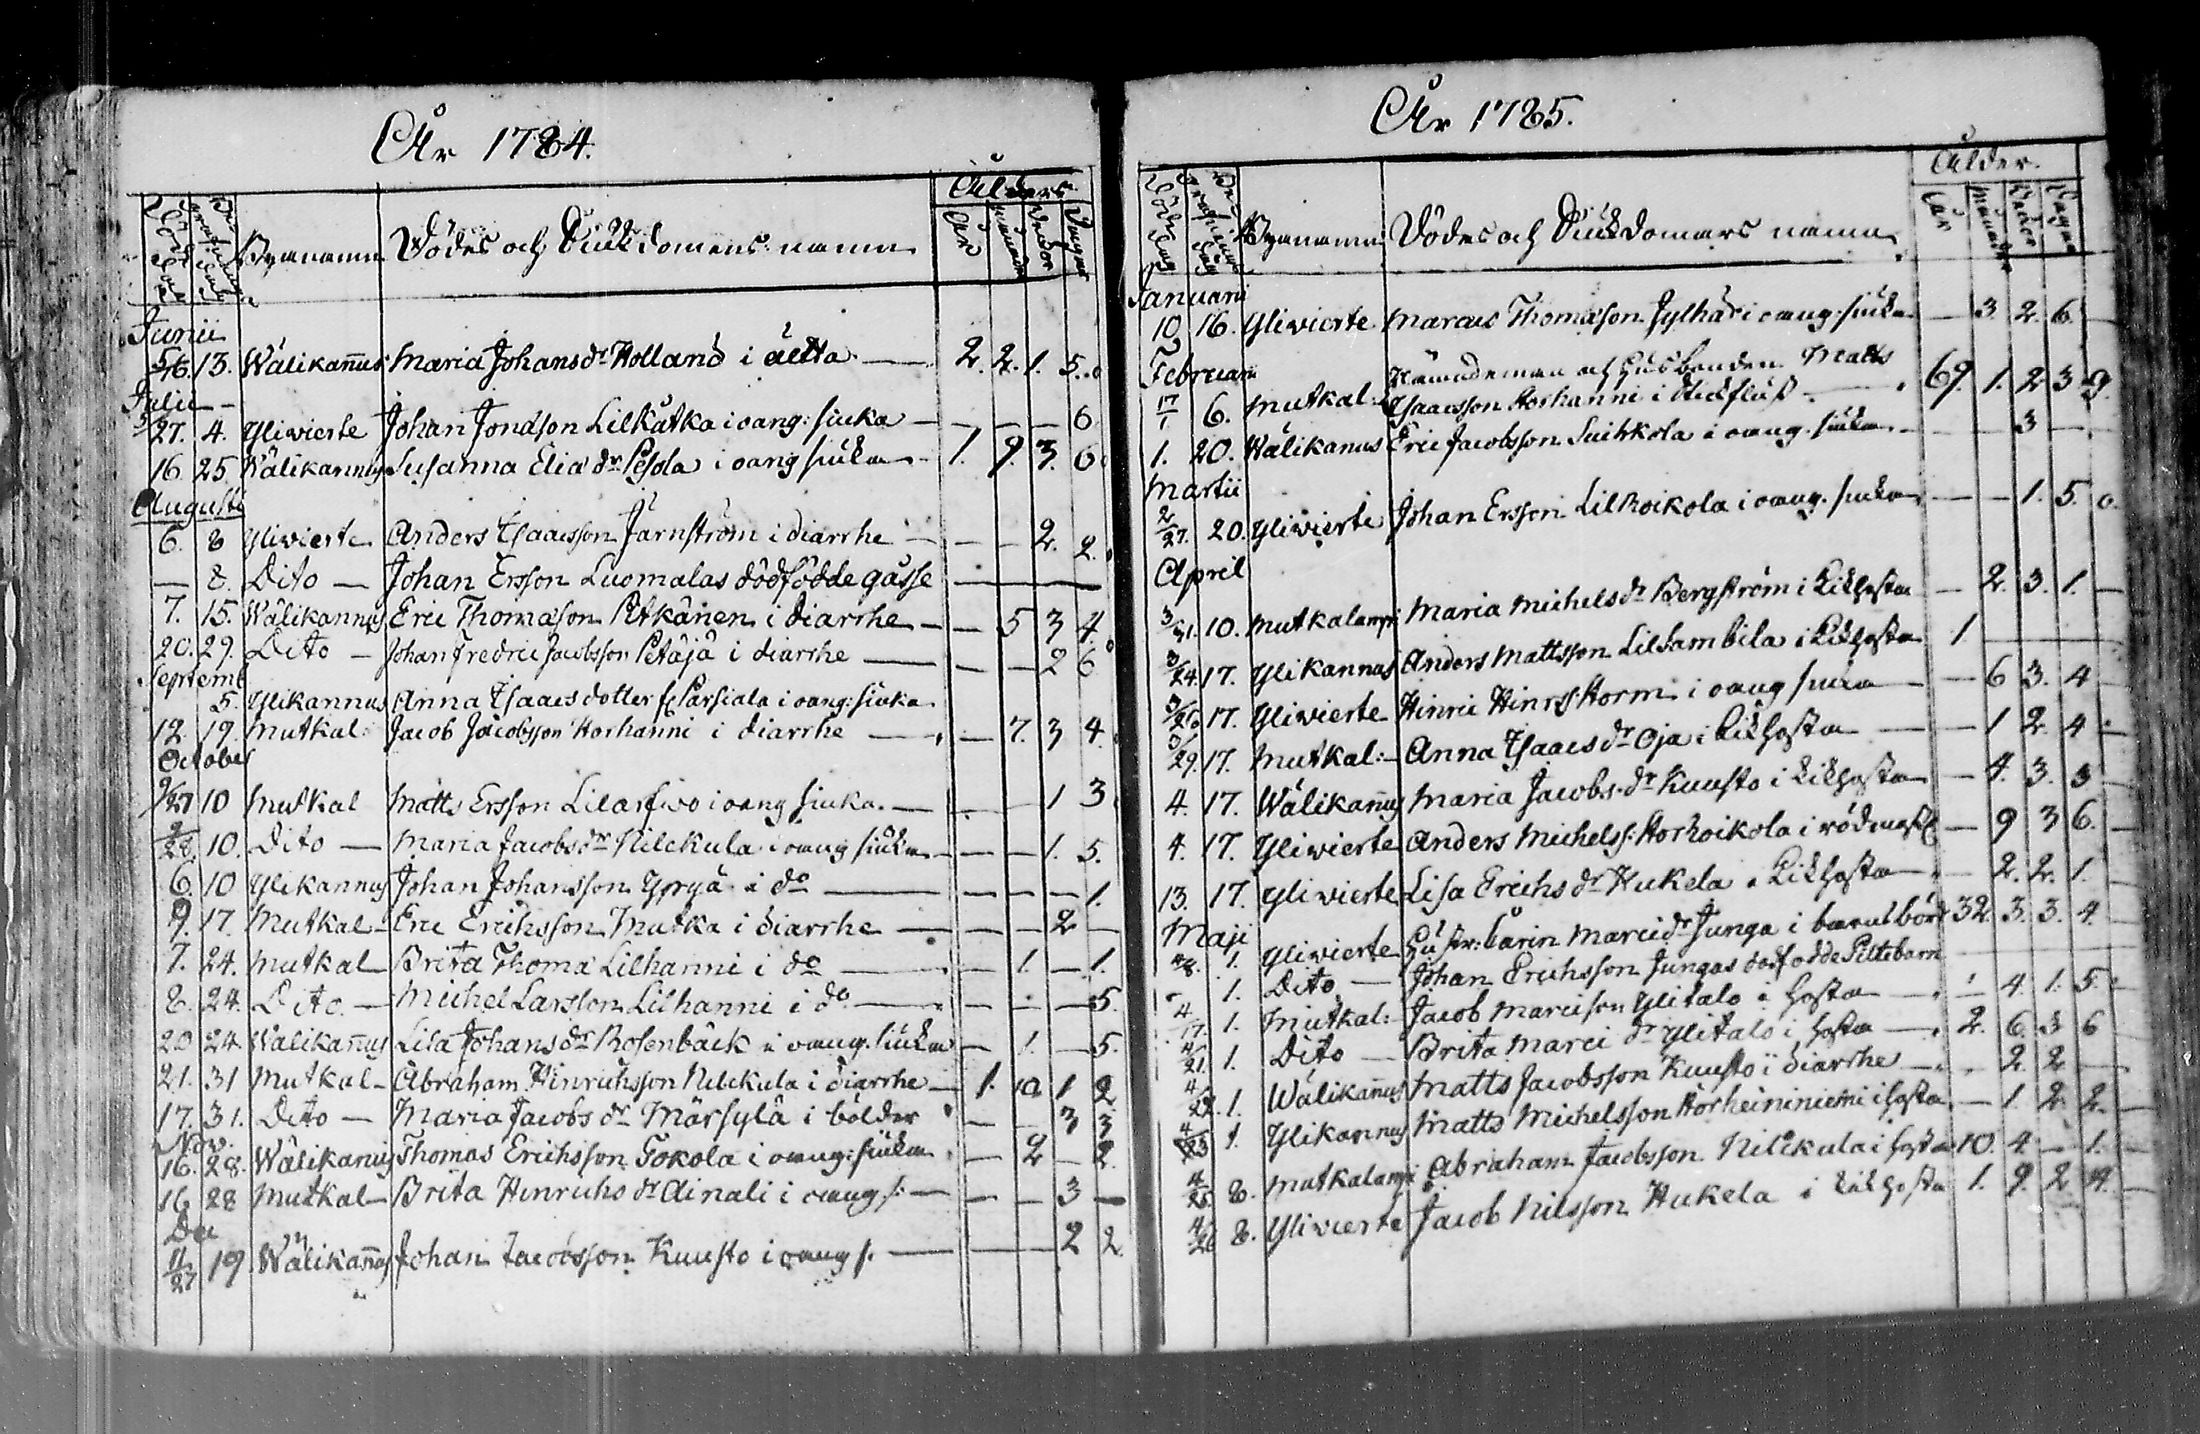 År 1784.
Döde Dag
Begrafnings Dag
Bÿanamn
Dödes och Siukdomens namn
Ålder
År
Månader
Vekor
Dagar
Junii
5/16. 13. Wälikañus Maria Johansdr Holland i ältta — 2. 2. 1. 5.
Julii
27. 4. Yliwierte Johan Jonasson Lilkåtka i oang: siuka — — — — 6
16. 25. Wälikannus Susanna Eliædr Pesola i oang siuka 1. 9. 3. 6
Augusti
6. 8 Yliwierte Anders Isaacsson Järnström i diarrhe — — — 2. 2.
— 8. Dito — Johan Ersson Luomalas dödfödde gåsse —
7. 15. Wälikannus Eric Thomasson Pitkänen i diarrhe — — 5 3 4.
20. 29. Dito — Johan Fredric Jacobsson Petäjä i diarrhe — — — 2 6
Septemb
5. Ylikannus Anna Isaacs dotter Parsiala i oang: siuka
12. 19. Mutkal: Jacob Jacobsson Korhanni i diarrhe — — 7. 3 4.
October
9/27 10 Mutkal Matts Ersson Lilarfwo i oang siuka. — 1 3.
9/28. 10. Dito — Maria Jacobsdr Nilckula i oang siuka — — — 1. 5.
6. 10 Ylikannus Johan Johansson Yrjä i do — — — — 1.
9. 17. Mutkal- Eric Erichsson Mutka i diarrhe — — — 2 —
7. 24. Mutkal Brita Thomæ Lilhanni i do — — 1. — 1.
8. 24. Dito. — Michel Larsson Lilhanni i do — — — — 5.
20 24. Wälikañus Lisa Johansdr Rosenbäck i oang. siuka — 1. — 5.
21. 31 Mutkal- Abraham Hinrichsson Nilckula i diarrhe — 1. 10 1 2
17. 31. Dito — Maria Jacobs dr Märsylä i bölder — — 3 3
Nov.
16. 28. Wälikanus Thomas Erichsson Tokola i oang: siuka — 2 — 2.
16 28 Mutkal- Brita Hinrichs dr Ainali i oang s: — — — 3 —
Dec
11/27 19. Wälikañus Johan Jacobsson Kuusto i oang s. — 2 2
År 1785.
Döde Dag
Begrafnings Dag
Bÿanamn
Dödes och Siukdomars namn
Ålder.
År
Månader
Vekor
Dagar
Januarii
10 16. Yliwierte Marcus Thomasson Jylhä i oang: siuka — 3 2. 6. —
Februarii
Nämndeman och Husbonden Matts
17/1 6. Mutkal: Isaacsson Korhanni i Stickfluss — 69. 1. 2 3
1. 20. Wälikanus Eric Jacobsson Suitkola i oang. siuka — — 3 —
Martii
2/27. 20. Yliwierte Johan Ersson Lilkoikola i oang. siuka — — 1. 5.
April
3/31. 10. Mutkalampi Maria Michelsdr Bergström i Kikhosta — 2. 3. 1. —
3/24. 17. Ylikannus Anders Mattsson LilSambila i Kikhosta 1 —
3/26 17. Yliwierte Hinric Hinrs: Storm i oang siuka — — 6 3. 4 —
3/29. 17. Mutkal: — Anna Isaacs dr Oja i Kikhosta — — 1 2. 4 —
4. 17. Wälikañus Maria Jacobs dr Kuusto i Kikhosta — 4. 3. 3 —
4. 17. Yliwierte Anders Michelss: Korkoikola i rödmask — 9 3 6. —
13. 17. Yliwierte Lisa Erichs dr Hukela i Kikhosta — 2. 2. 1.
Maji
4/8. 1. Yliwierte Hustr: Carin Marci dr Junga i barnsbörd 32. 3. 3. 4.
1. Dito — Johan Erichsson Jungas dödfödde Piltebarn
4/17. 1. Mutkal: Jacob Marcisson Ylitalo i hosta — 4. 1. 5.
4/21. 1. Dito — Brita Marci dr Ylitalo i hosta — 2. 6. 3 6
4/22. 1. Wälikañus Matts Jacobsson Kuusto i diarrhe — 2. 2 —
4/23 1. Ylikannus Matts Michelsson Korheininiemi i hosta — 1. 2. 2.
4/25. 8. Mutkalampi Abraham Jacobsson Nilckula i hosta 10. 4 — 1. —
4/26 8. Yliwierte Jacob Nilsson Hukela i Kikhosta 1. 9. 2. 4.